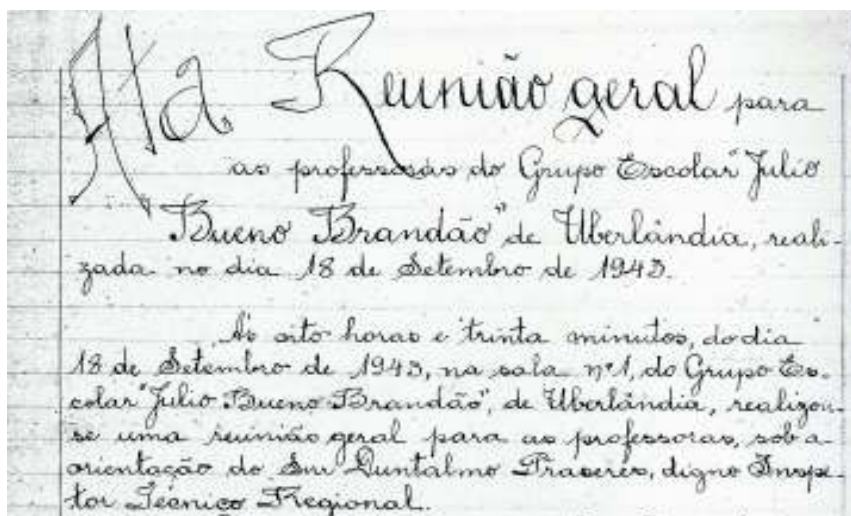 Ata Reunião geral para
as professoras do Grupo Escolar "Julio
Bueno Brandão" de Uberlândia, reali-
zada no dia 18 de Setembro de 1943.
Ás oito horas e trinta minutos, do dia
18 de Setembro de 1943, na sala nº 1, do Grupo Es-
colar "Julio Bueno Brandão", de Uberlândia, realizou-
se uma reunião geral para as professoras, sob a
orientação do Snr Duntalmo Prazeres, digno Inspe-
tor Técnico Regional.